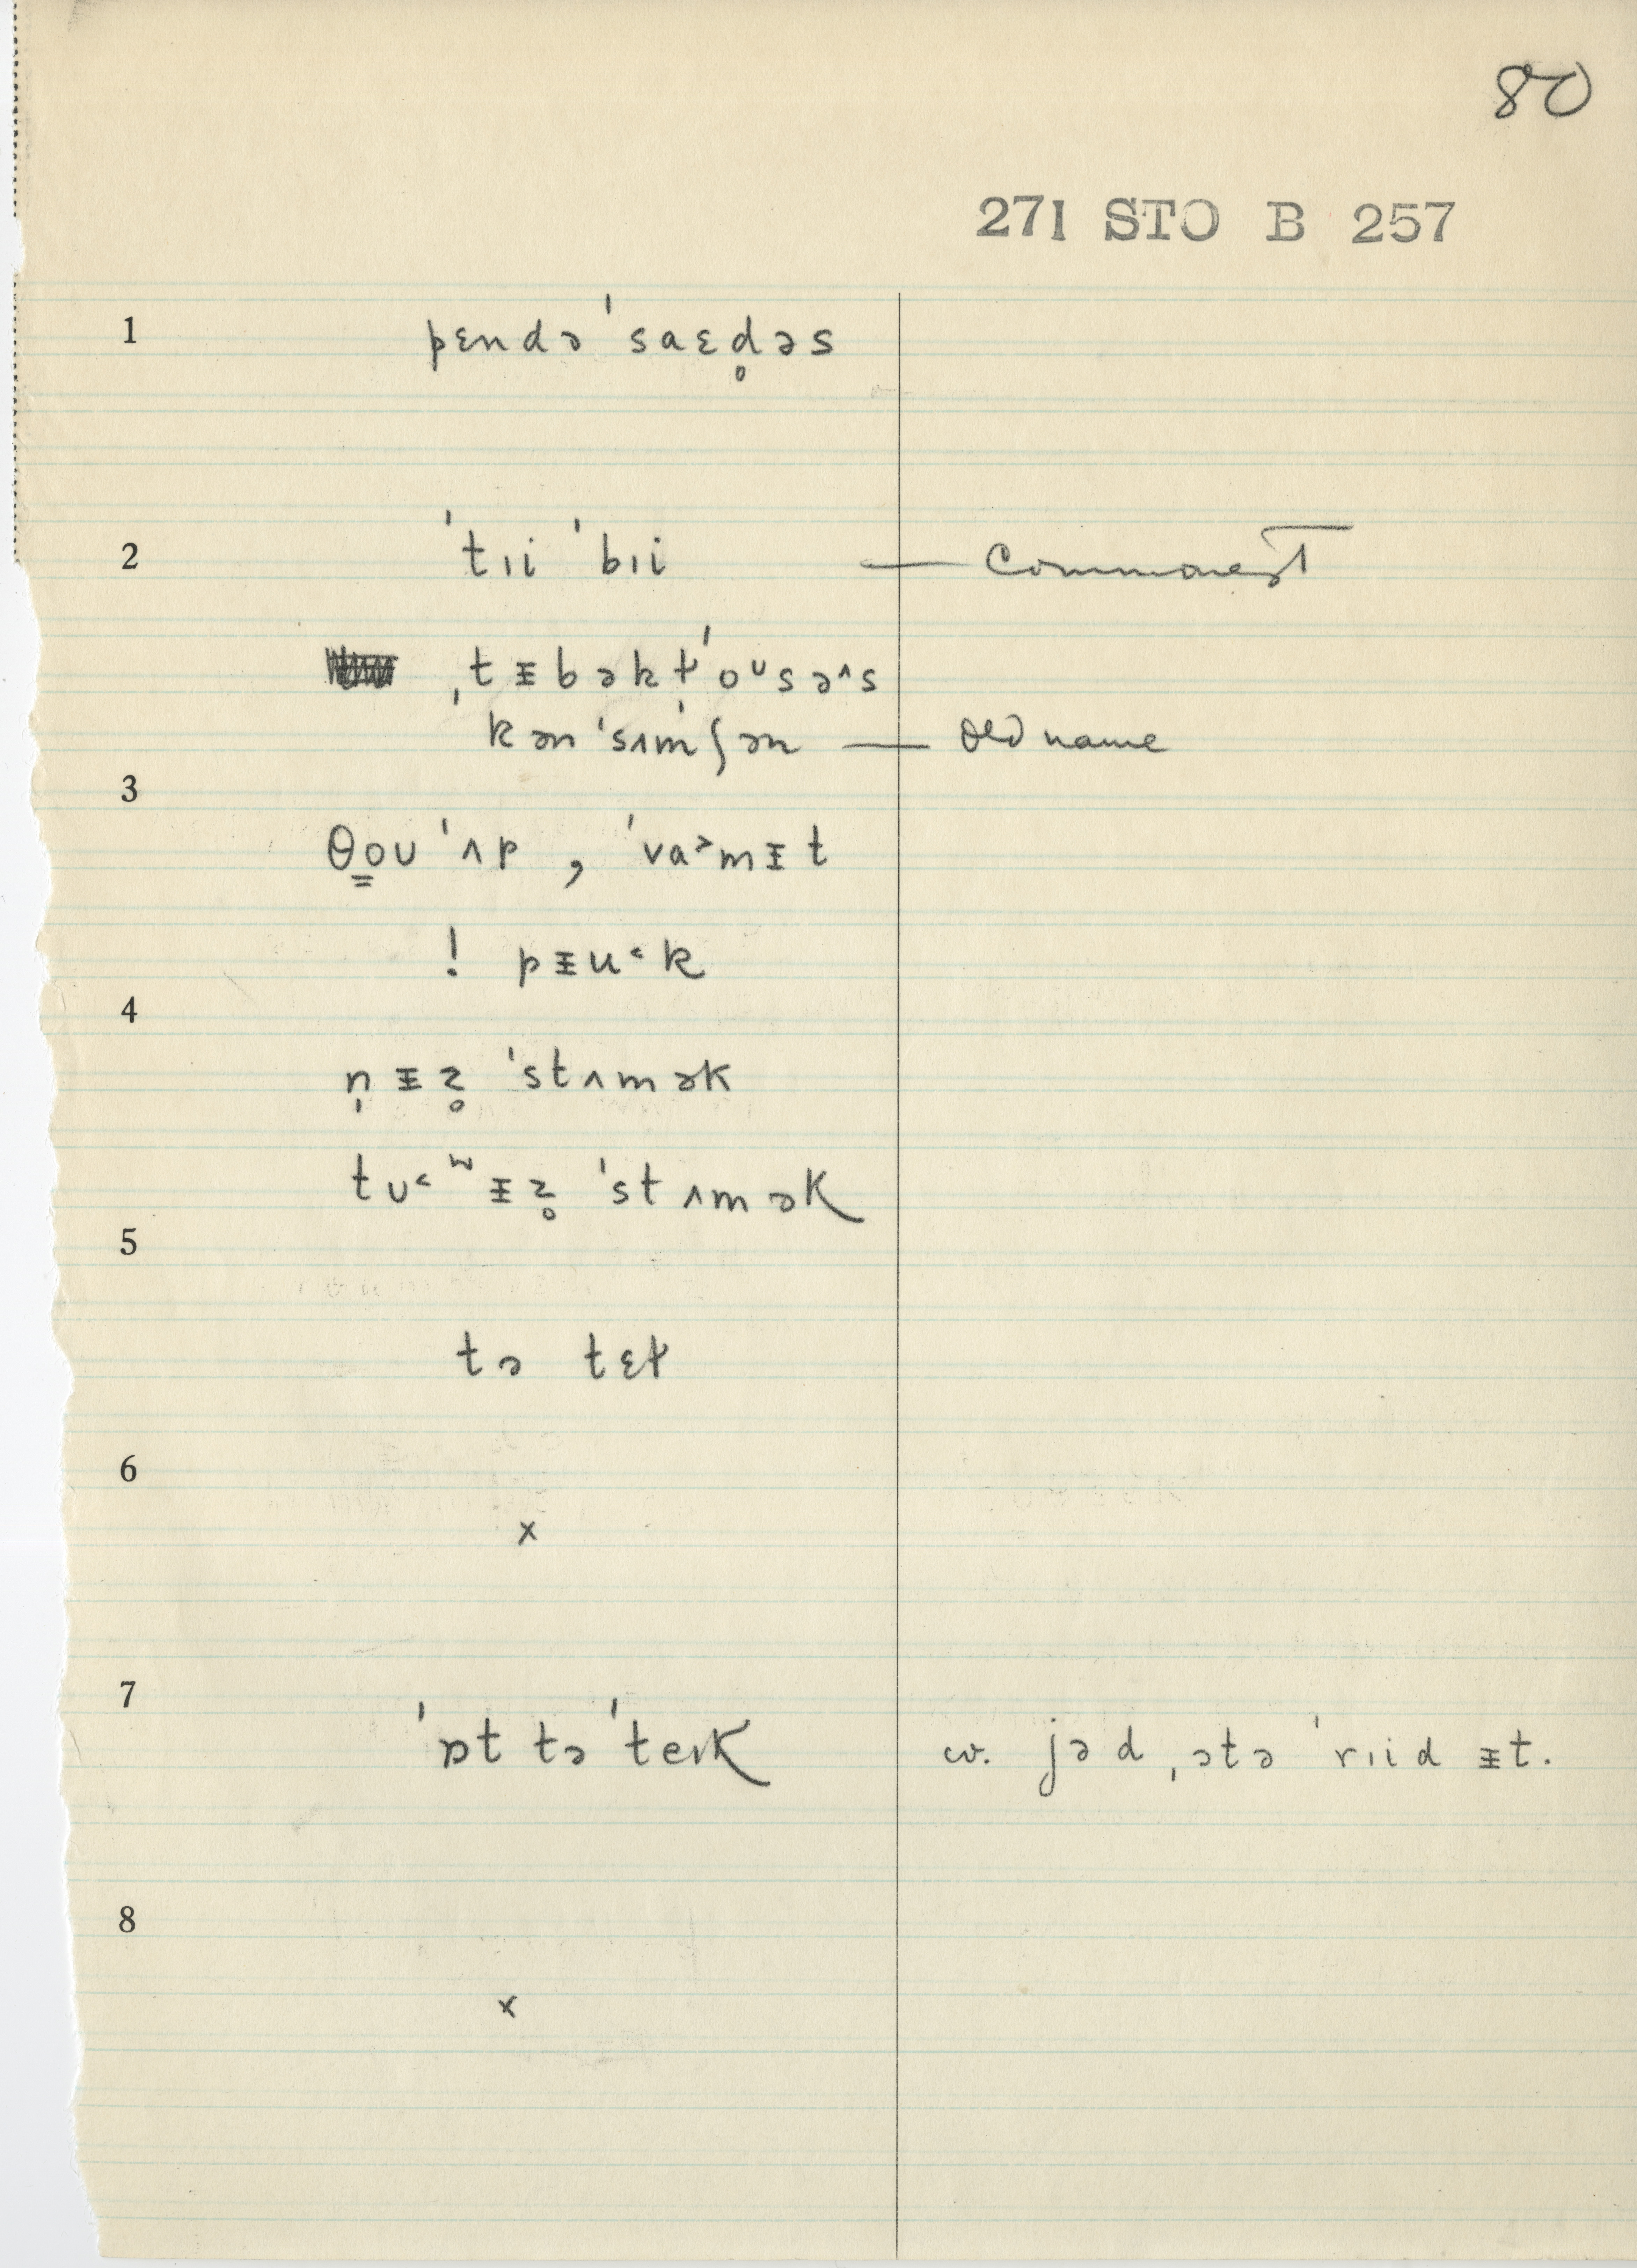 80
271 STO B 257
1 pɛndə ˈsaɛd̥əs
2 ˈtɪi ˈbɪi — commonest
ˌtᵻbəkt̬ˈoᶷsəˆs
kənˈsʌmʃən — old name
3
θo̳ʊ ˈʌp , ˈva˃mᵻt
! pᵻu˂k
4
n̩ᵻz̥ ˈstʌmək
tʊ˂ʷᵻz̥ ˈstʌmək
5
tə tɛt̬
6
x
7
ˈɒt təˈteɪK w. jəd ˌɔtə ˈrɪid ᵻt.
8
x